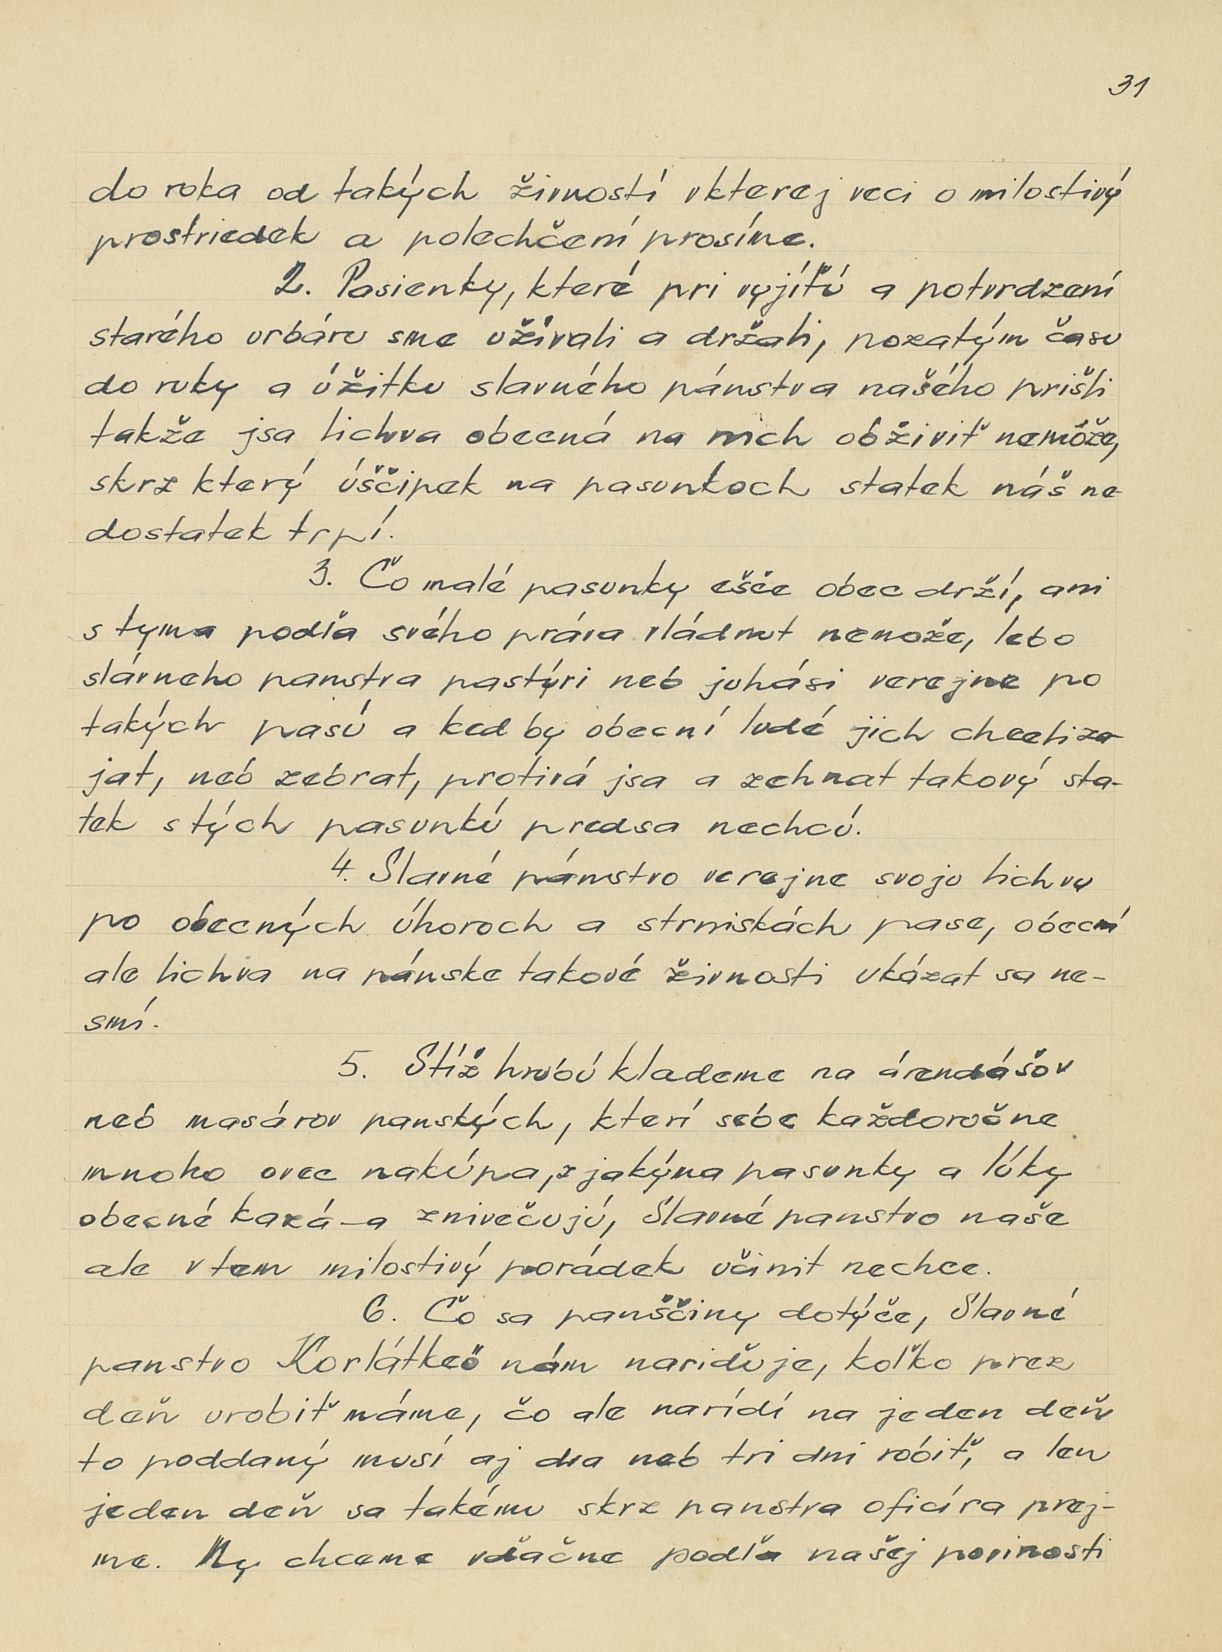 31
do roka od takých živností vkterej veci o milostivý
prostriedek a polechčení prosíme.
2. Pasienky, které pri vyjíťú a potvrdzení
starého urbáru sme užívali a držali, pozatým času
do ruky a úžitku slavného pánstva našého prišli
takže jsa lichva obecná na nich obživiť nemôže,
skrz který úščipek na pasunkoch statek náš ne-
dostatek trpí.
3. Čo malé pasunky ešče obec drží, ani
s tyma podľa svého práva vládnut nemože, lebo
slávneho panstva pastýri neb juhási verejne po
takých pasú a ked by obecní ludé jich chceli za-
jat, neb zebrat, protivá jsa a zehnat takový sta-
tek s tých pasunkú predsa nechcú.
4. Slavné pánstvo verejne svoju lichvu
po obecných úhoroch a strniskách pase, obecní
ale lichva na pánske takové živnosti ukázat sa ne-
smí.
5. Stíž hrubú klademe na árendášov
neb masárov panských, kterí sebe každoročne
mnoho ovec nakúpa, z jakýma pasunky a lúky
obecné kazá-a znivečujú, Slavné panstvo naše
ale v tem milostivý porádek učinit nechce.
6. Čo sa panščiny dotýče, Slavné
panstvo Korlátkeö nám nariďuje, koľko prez
deň urobiť máme, čo ale narídí na jeden deň
to poddaný musí aj dva neb tri dni robiť, a len
jeden deň sa takému skrz panstva oficíra prej-
me. My chceme vďačne podľa našej povinosti